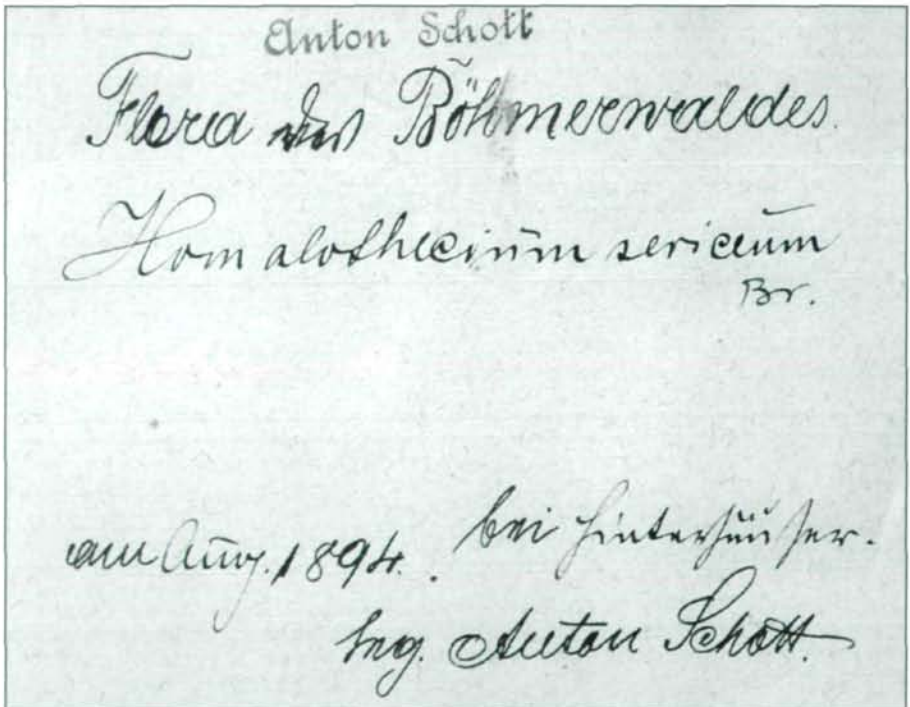 Anton Schott
Flora des Böhmerwaldes.
Homalothecium sericeum
Br.
am Aug. 1894. bei Hinterhäuser.
leg. Anton Schott.